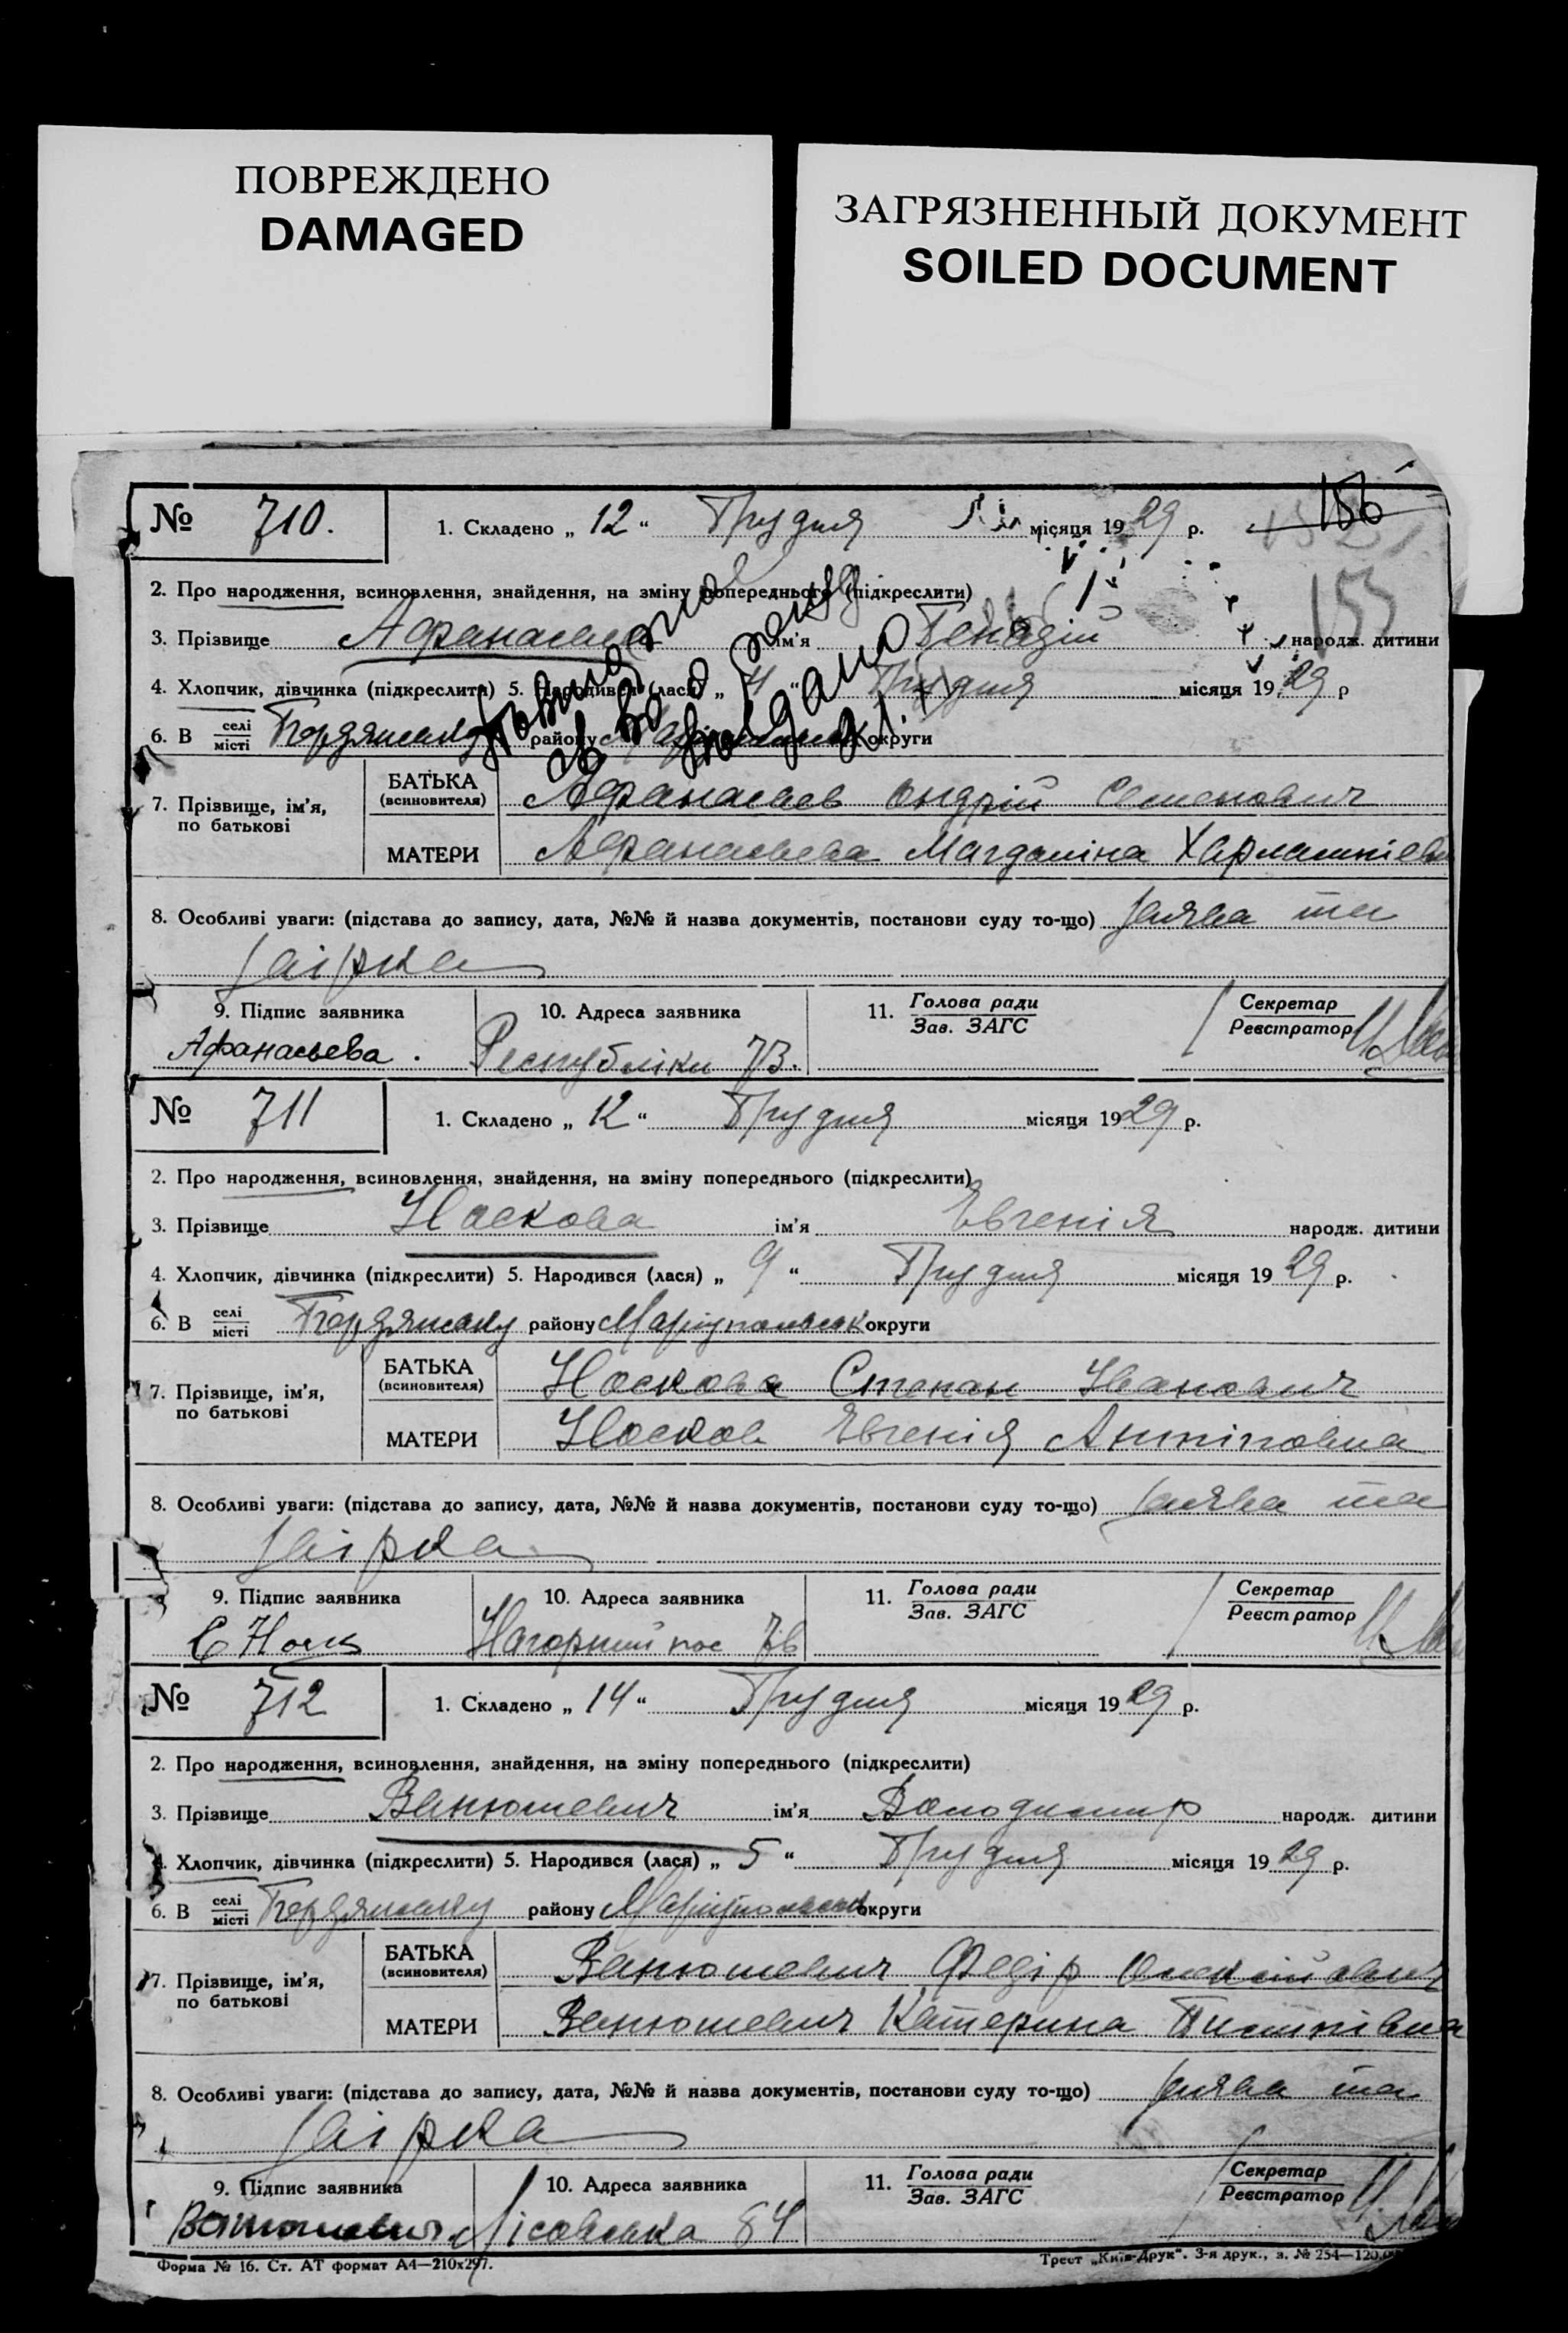 ПОВРЕЖДЕНО
DAMAGED
ЗАГРЯЗНЕННЫЙ ДОКУМЕНТ
SOILED DOCUMENT
156
153
№ 710. 1. Складено „ 12 “ Грудня місяця 1929 р.
2. Про народження, всиновлення, знайдення, на зміну попереднього (підкреслити)
3. Прізвище Афанасьев ім'я Генадій народж. дитини
4. Хлопчик, дівчинка (підкреслити) 5. Народився (лася) „ 4 “ Грудня місяця 1929 р
6. В селі місті Бердянську району округи
7. Прізвище, ім'я, по батькові
БАТЬКА (всиновителя) Афанасьев Ондрій Семенович
МАТЕРИ Афанасьева Магдалина Харлампіевна
8. Особливі уваги: (підстава до запису, дата, №№ й назва документів, постанови суду то-що) заява та
9. Підпис заявника 10. Адреса заявника 11. Голова ради Зав. ЗАГС Секретар Реєстратор
Афанасьева. Республіки 73.
№ 711 1. Складено „ 12 “ Грудня місяця 1929 р.
2. Про народження, всиновлення, знайдення, на зміну попереднього (підкреслити)
3. Прізвище Носкова ім'я Евгенія народж. дитини
4. Хлопчик, дівчинка (підкреслити) 5. Народився (лася) „ 9 “ Грудня місяця 1929 р.
6. В селі місті Бердянську району Маріупольськ округи
7. Прізвище, ім'я, по батькові
БАТЬКА (всиновителя) Носкова Степан Іванович
МАТЕРИ Носков Евгенія Антіповна
8. Особливі уваги: (підстава до запису, дата, №№ й назва документів, постанови суду то-що) заява та
9. Підпис заявника 10. Адреса заявника 11. Голова ради Зав. ЗАГС Секретар Реєстратор
Е Носк Нагорний пос
№ 712 1. Складено „ 14 “ Грудня місяця 1929 р.
2. Про народження, всиновлення, знайдення, на зміну попереднього (підкреслити)
3. Прізвище Ванюшевич ім'я Володимир народж. дитини
4. Хлопчик, дівчинка (підкреслити) 5. Народився (лася) „ 5 “ Грудня місяця 1929 р.
6. В селі місті Бердянську району Маріупольськ округи
7. Прізвище, ім'я, по батькові
БАТЬКА (всиновителя) Ванюшевич Федір Олексійович
МАТЕРИ Ванюшевич Катерина
8. Особливі уваги: (підстава до запису, дата, №№ й назва документів, постанови суду то-що) заява та
9. Підпис заявника 10. Адреса заявника 11. Голова ради Зав. ЗАГС Секретар Реєстратор
Ванюшевич Лісовська 84
Форма № 16. Ст. АТ формат А4—210х297. Трест „Київ-Друк“. 3-я друк., з. № 254—120.